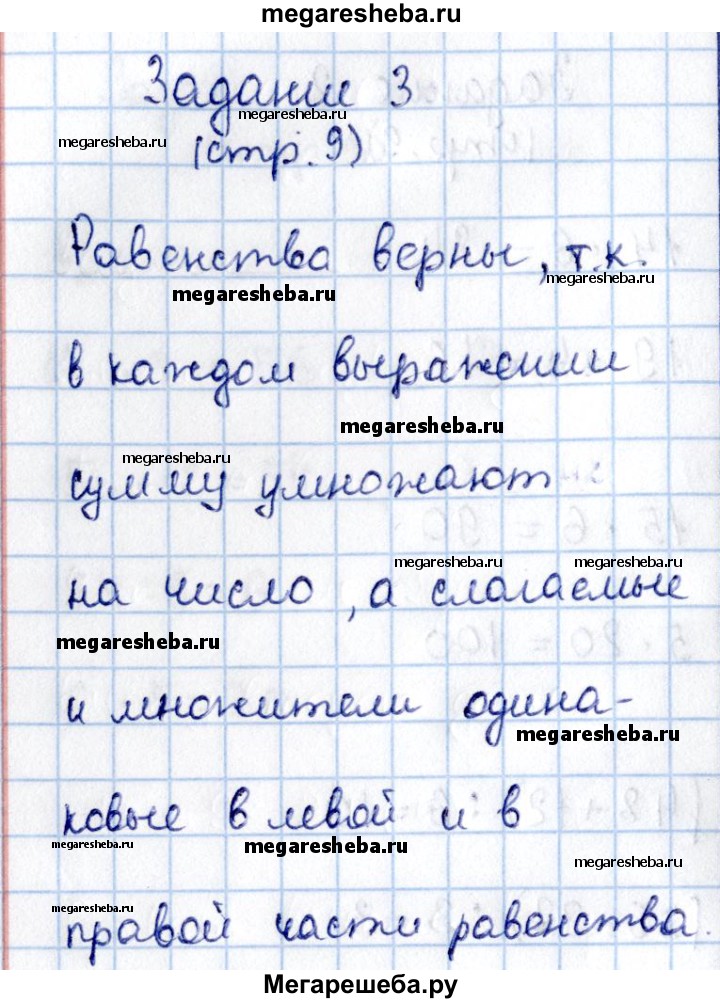 megaresheba.ru
Задание 3
megaresheba.ru
megaresheba.ru
(стр. 9)
Равенства верны, т.к.
megaresheba.ru
megaresheba.ru
в каждом выражении
megaresheba.ru
megaresheba.ru
сумму умножают
megaresheba.ru
megaresheba.ru
на число, а слагаемые
megaresheba.ru
и множители одина-
megaresheba.ru
ковые в левой и в
megaresheba.ru
megaresheba.ru
megaresheba.ru
megaresheba.ru
правой части равенства.
Мегарешеба.ру